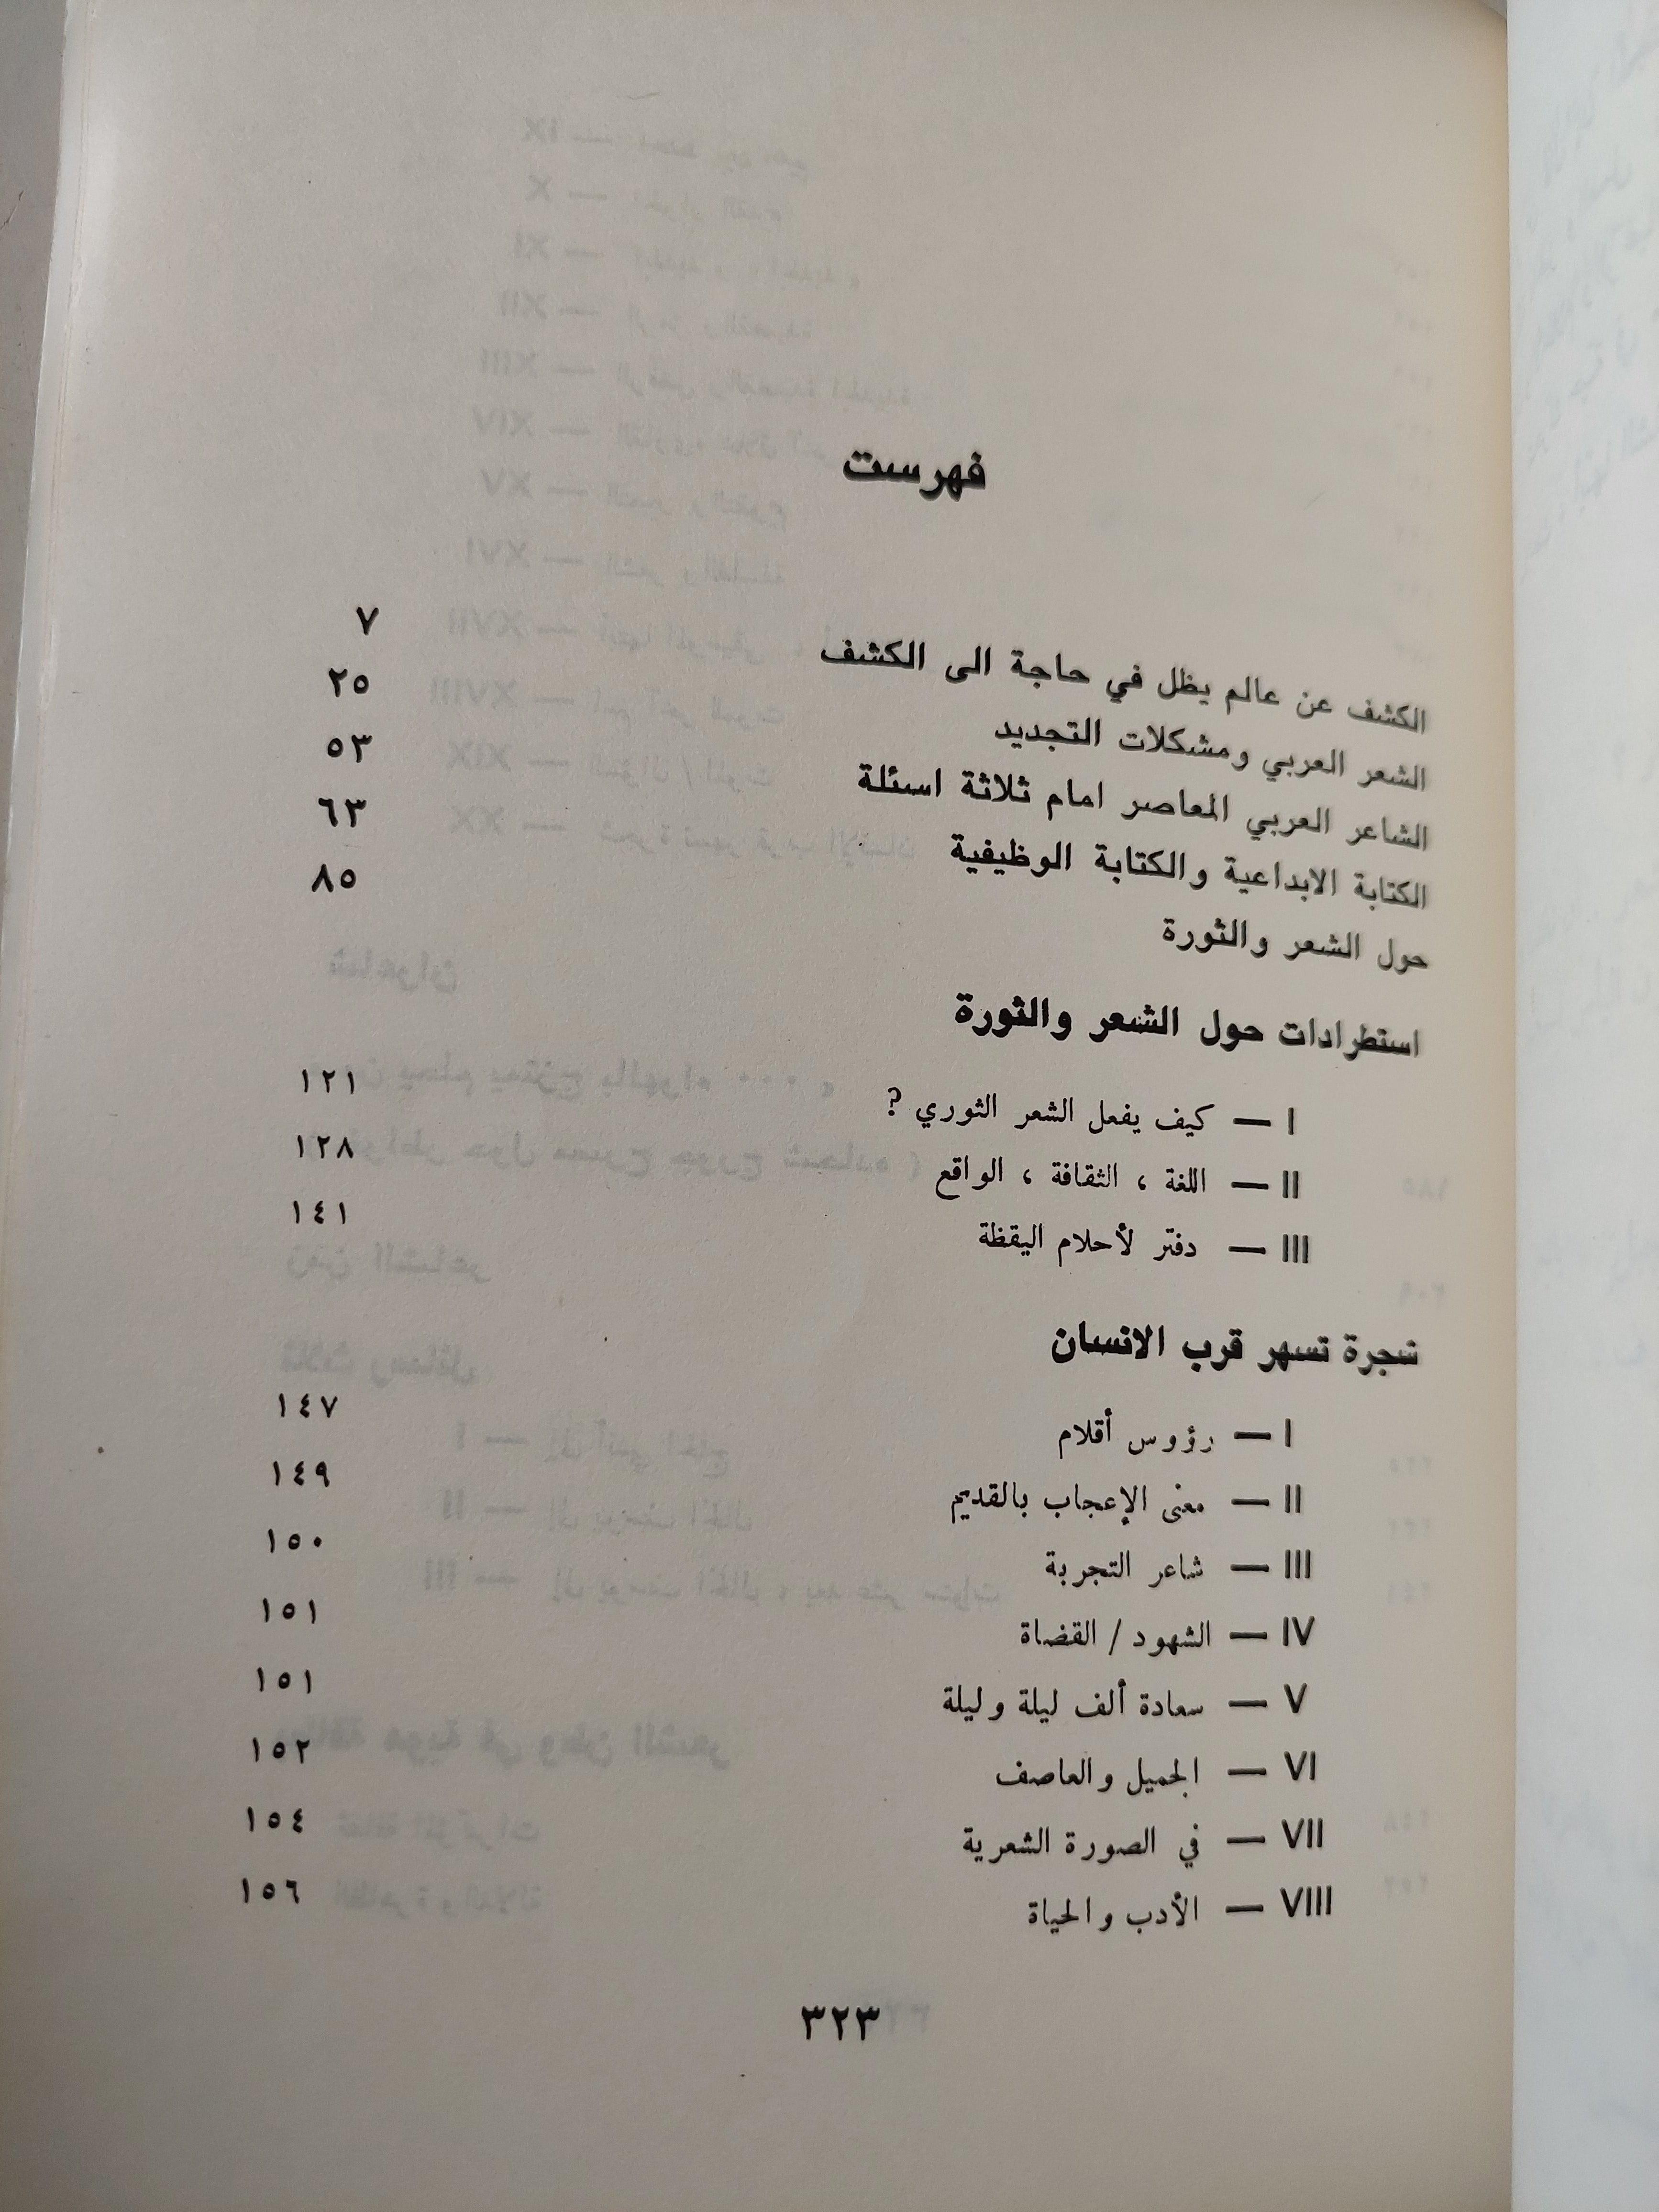 فهرست
الكشف عن عالم يظل في حاجة الى الكشف ٧
الشعر العربي ومشكلات التجديد ٢٥
الشاعر العربي المعاصر امام ثلاثة اسئلة ٥٣
الكتابة الابداعية والكتابة الوظيفية ٦٣
حول الشعر والثورة ٨٥
استطرادات حول الشعر والثورة
I — كيف يفعل الشعر الثوري ? ١٢١
II — اللغة ، الثقافة ، الواقع ١٢٨
III — دفتر لأحلام اليقظة ١٤١
شجرة تسهر قرب الانسان
I — رؤوس أقلام ١٤٧
II — معنى الإعجاب بالقديم ١٤٩
III — شاعر التجربة ١٥٠
IV — الشهود / القضاة ١٥١
V — سعادة ألف ليلة وليلة ١٥١
VI — الجميل والعاصف ١٥٢
VII — في الصورة الشعرية ١٥٤
VIII — الأدب والحياة ١٥٦
٣٢٣